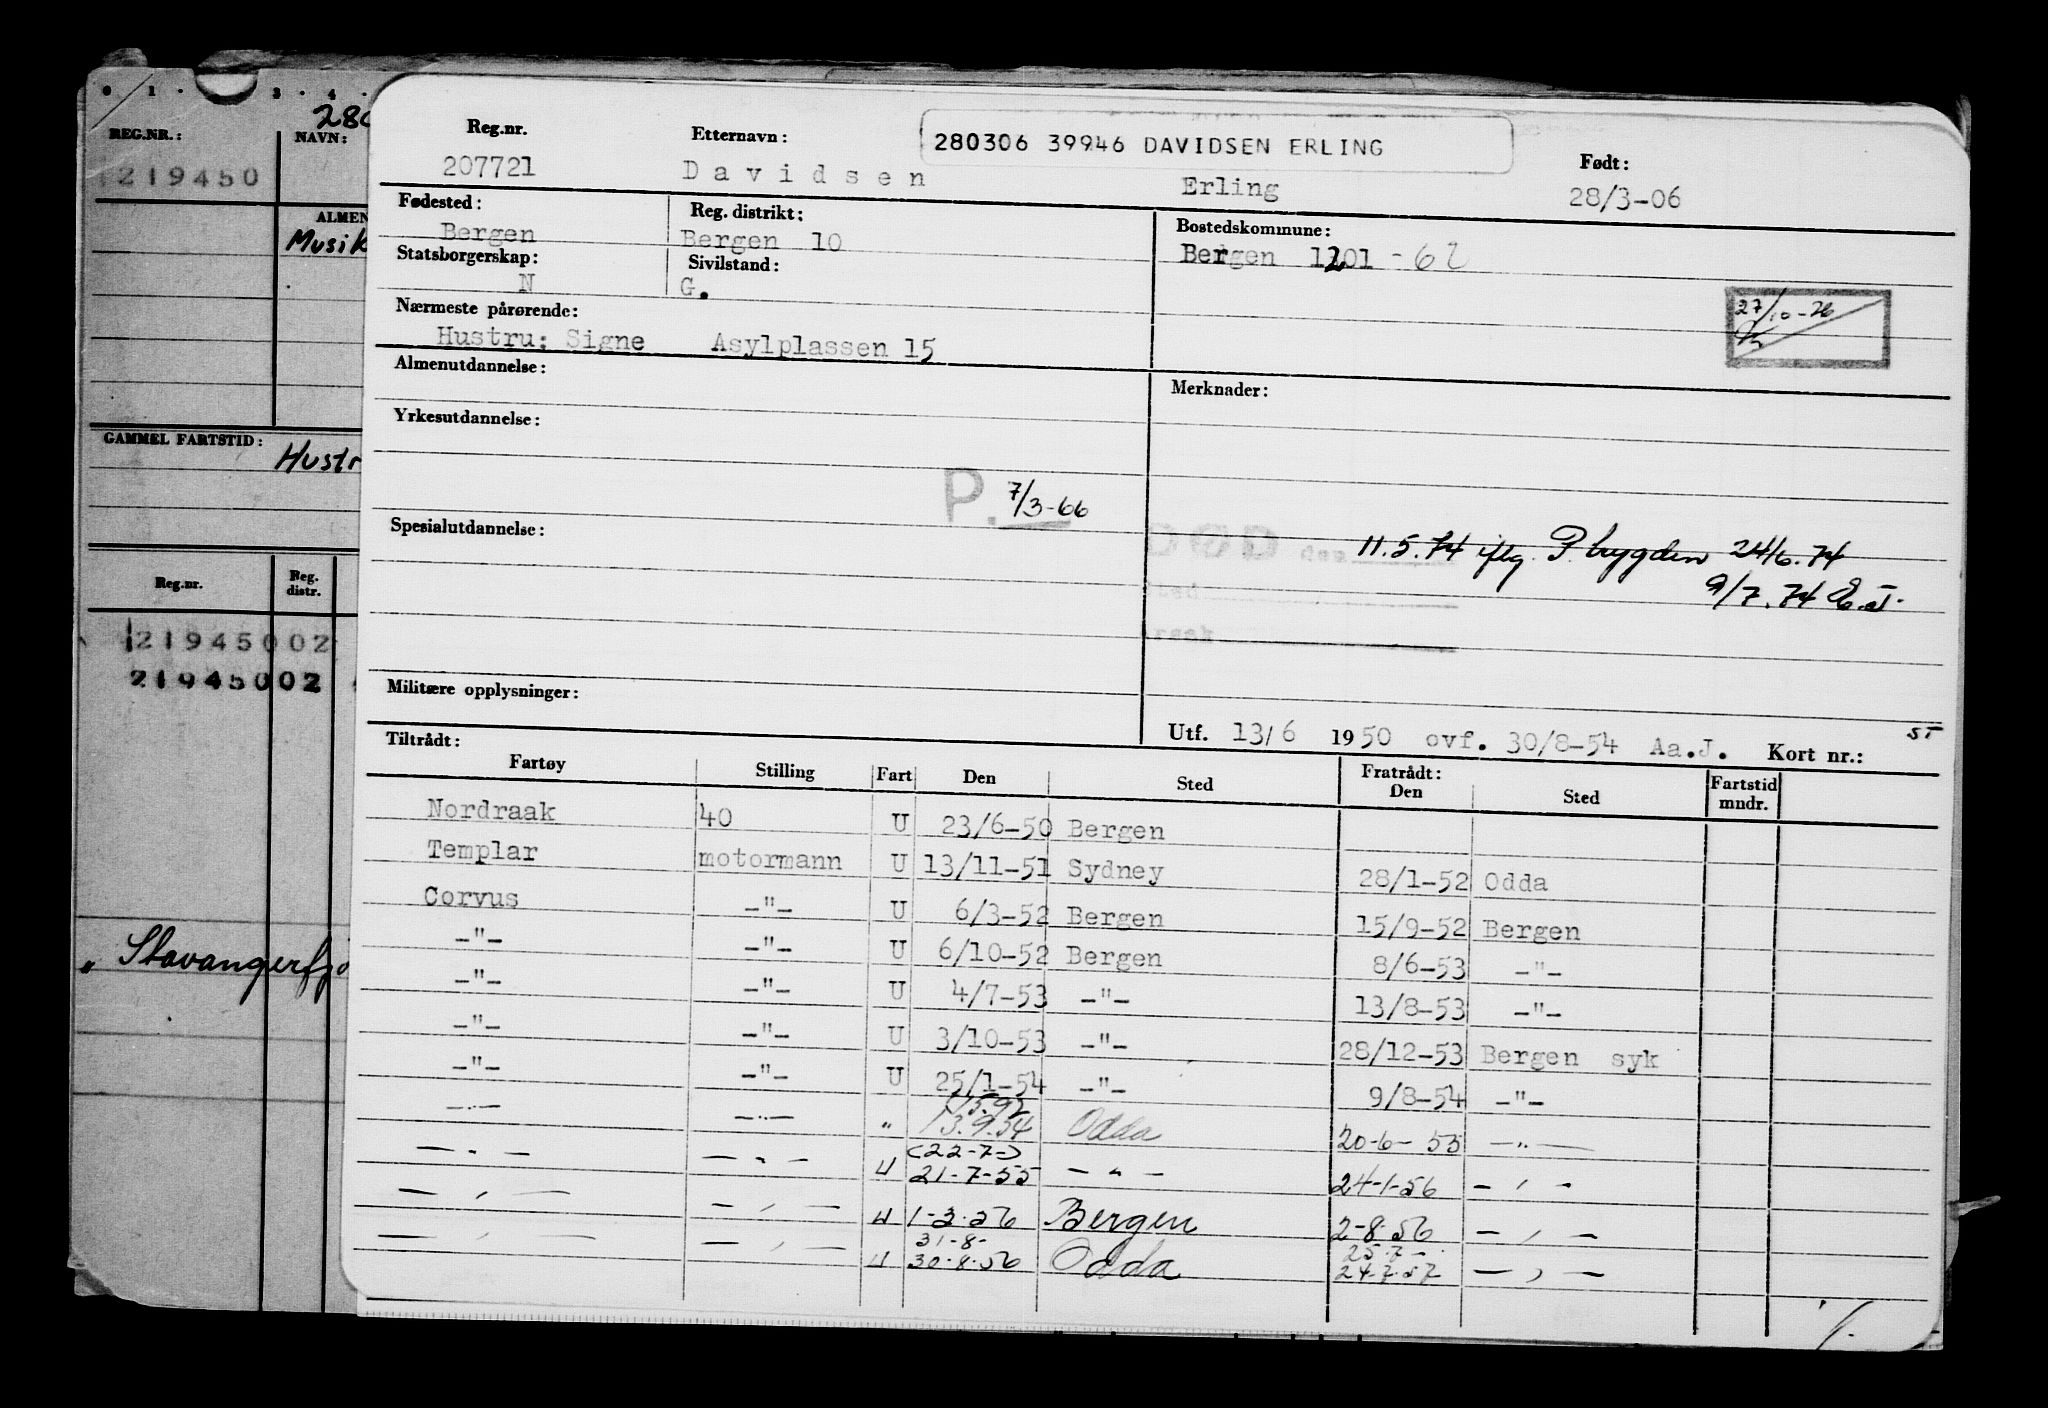 0 1 · 3 · 4 ·
REG.NR.: NAVN:
219450
ALMEN
Musik
GAMMEL FARTSTID:
Hustr
Reg.nr. Reg. distr.
21945002
21945002
„ Stavangerfj
Reg.nr. Etternavn: 280306 39946 DAVIDSEN ERLING Født:
207721 Davidsen Erling 28/3-06
Fødested: Reg. distrikt: Bostedskommune:
Bergen Bergen 10 Bergen 1201 - 62
Statsborgerskap: Sivilstand:
N G.
27/10-76
Nærmeste pårørende:
Hustru: Signe Asylplassen 15
Almenutdannelse: Merknader:
Yrkesutdannelse:
P. 7/3-66
Spesialutdannelse:
DØD den 11.5.74 iflg. P. trygden 24/6.74
Sted 9/7.74 E.J.
Årsak
Militære opplysninger:
Utf. 13/6 1950 ovf. 30/8-54 Aa.J. Kort nr.: ST
Tiltrådt: Fratrådt:
Fartøy Stilling Fart Den Sted Den Sted Fartstid mndr.
Nordraak 40 U 23/6-50 Bergen
Templar motormann U 13/11-51 Sydney 28/1-52 Odda
Corvus -"- U 6/3-52 Bergen 15/9-52 Bergen
-"- -"- U 6/10-52 Bergen 8/6-53 -"-
-"- -"- U 4/7-53 -"- 13/8-53 -"-
-"- -"- U 3/10-53 -"- 28/12-53 Bergen syk
-"- -"- U 25/1-54 -"- 9/8-54 -"-
-"- -"- " 13.9.54 Odda 20-6-55 -"-
(22-7-)
-"- -"- U 21-7-55 -"- 24-1-56 -"-
-"- -"- U 1-3-56 Bergen 2-8-56 -"-
31-8- 25-7-
-"- -"- U 30-8-56 Odda 24-7-57 -"-